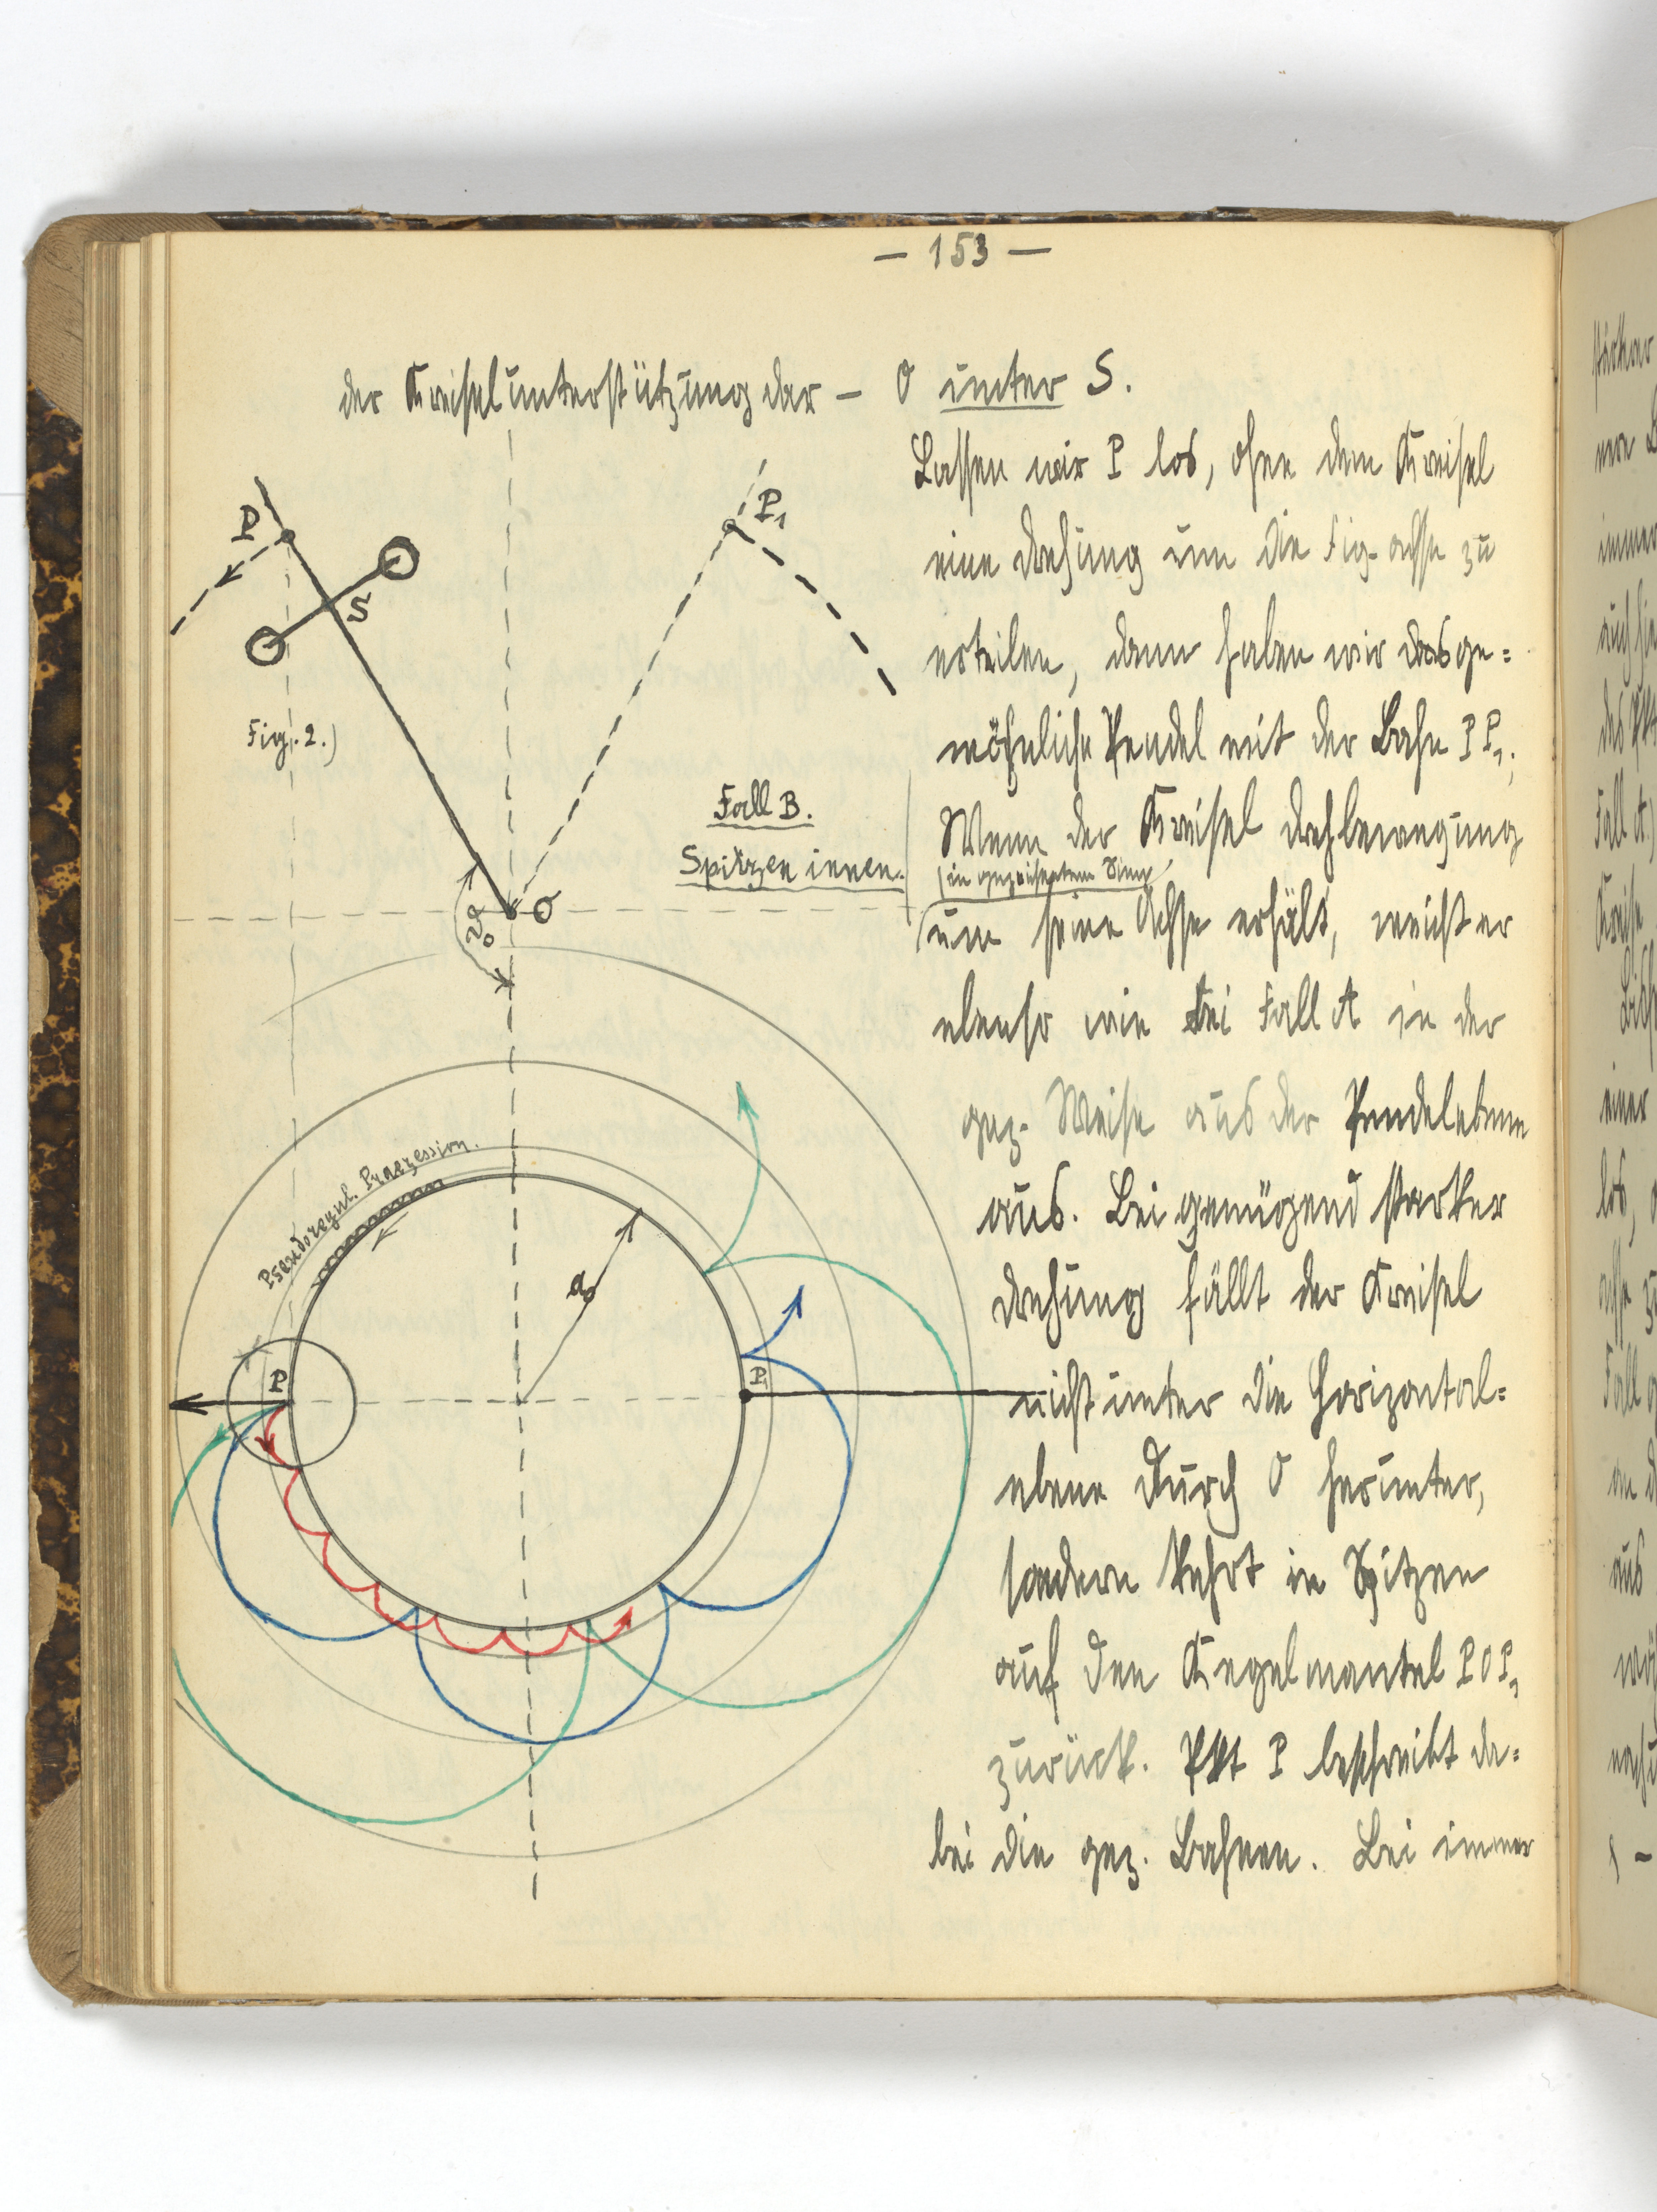 — 153 —
der Kreiselunterstützung dar – O unter S.
Lassen wir P los, ohne dem Kreisel
eine Drehung um die Fig. achse zu
erteilen, dann haben wir das ge=
wöhnliche Pendel mit der Bahn P P₁.
Wenn der Kreisel Drehbewegung
(in gezeichnetem Sinn)
um seine Achse erhält, weicht er
ebenso wie bei Fall A in der
gez. Weise aus der Pendelebene
aus. Bei genügend starker
Drehung fällt der Kreisel
nicht unter die Horizontal=
ebene durch O herunter,
sondern kehrt in Spitzen
auf den Kegelmantel P O P₁
zurück. Pkt P beschreibt da=
bei die gez. Bahnen. Bei immer
P
P₁
S
Fig. 2.)
Fall B.
Spitzen innen.
O
ϑ₀
Pseudoregul. Praezession.
a₀
P
P₁